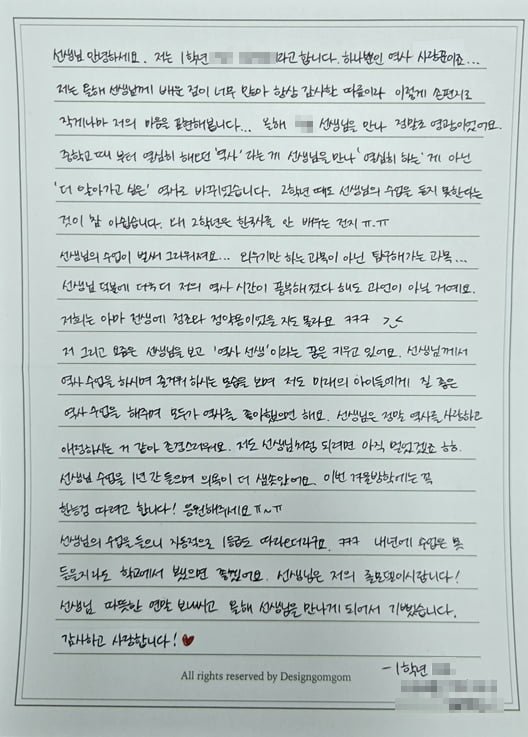 선생님 안녕하세요. 저는 1학년 라고 합니다. 하나뿐인 역사 사랑꾼이죠...
저는 올해 선생님께 배운 점이 너무 많아 항상 감사한 따름이라 이렇게 손편지로
작게나마 저의 마음을 표현해봅니다... 올해 선생님을 만나 정말로 영광이었어요.
중학교 때 부터 열심히 해왔던 '역사' 라는 게 선생님을 만나 '열심히 하는' 게 아닌
'더 알아가고 싶은' 역사로 바뀌었습니다. 2학년 때도 선생님의 수업을 듣지 못한다는
것이 참 아쉽습니다. 왜 2학년은 한국사를 안 배우는 건지 ㅠ.ㅠ
선생님의 수업이 벌써 그리워져요... 외우기만 하는 과목이 아닌 탐구해가는 과목...
선생님 덕분에 더욱 더 저의 역사 시간이 풍부해졌다 해도 과언이 아닐 거예요.
저희는 아마 전생에 정조와 정약용이었을 지도 몰라요 ㅋㅋㅋ >_<
저 그리고 요즘은 선생님을 보고 '역사 선생'이라는 꿈을 키우고 있어요. 선생님께서
역사 수업을 하시며 즐거워 하시는 모습을 보며 저도 미래의 아이들에게 질 좋은
역사 수업을 해주며 모두가 역사를 좋아했으면 해요. 선생님은 정말 역사를 사랑하고
애정하시는 거 같아 존경스러워요. 저도 선생님처럼 되려면 아직 멀었겠죠 ㅎㅎ.
선생님 수업을 1년 간 들으며 의욕이 더 샘솟았어요. 이번 겨울방학에는 꼭
한능검 따려고 합니다! 응원해주세요 ㅠ~ㅠ
선생님의 수업을 들으니 자동적으로 1등급도 따라오더라구요. ㅋㅋㅋ 내년에 수업은 못
듣을지라도 학교에서 뵀으면 좋겠어요. 선생님은 저의 롤모델이시랍니다!
선생님 따뜻한 연말 보내시고 올해 선생님을 만나게 되어서 기뻤습니다.
감사하고 사랑합니다! ♥
- 1학년
All rights reserved by Designgomgom